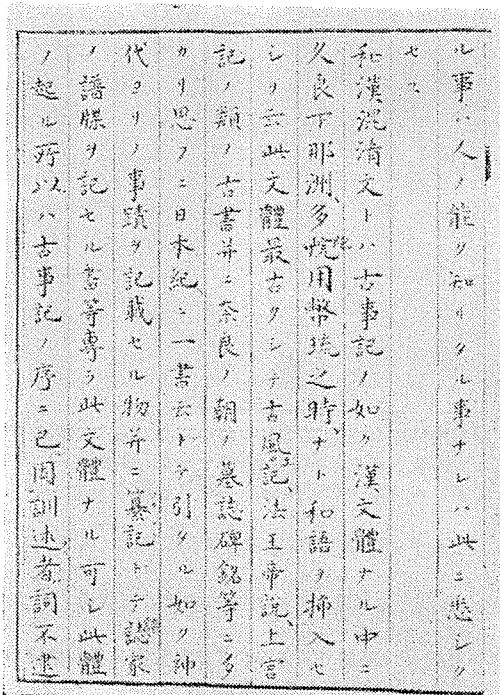 ル事ハ人ノ能ク知リタル事ナレハ此ニ悉シク
セス
和漢混淆文トハ古事記ノ如ク漢文體ナル中ニ
久良下那洲、多陀用幣琉之時、ナト和語ヲ挿入セ
シヲ云此文體最古クシテ古風記、法王帝説、上宮
記ノ類ノ古書并ニ奈良ノ朝ノ墓誌碑銘等ニ多
カリ思フニ日本紀ニ一書云トテ引タル如ク神
代ヨリノ事蹟ヲ記載セル物并ニ纂記トテ諸家
ノ譜牒ヲ記セル書等專ラ此文體ナル可シ此體
ノ起ル所以ハ古事記ノ序ニ已因訓述者詞不逮